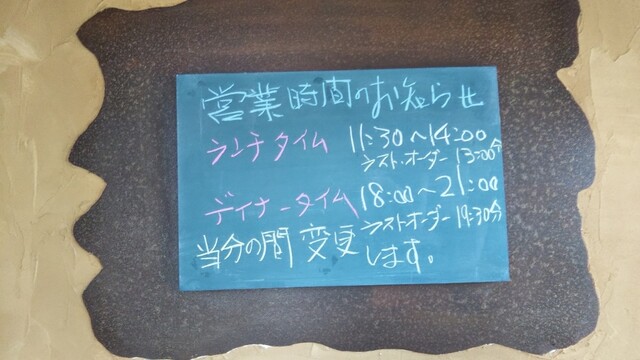 営業時間のお知らせ
ランチタイム 11:30～14:00
ラスト・オーダー 13:00分
ディナータイム 18:00～21:00
ラストオーダー 19:30分
当分の間 変更します。